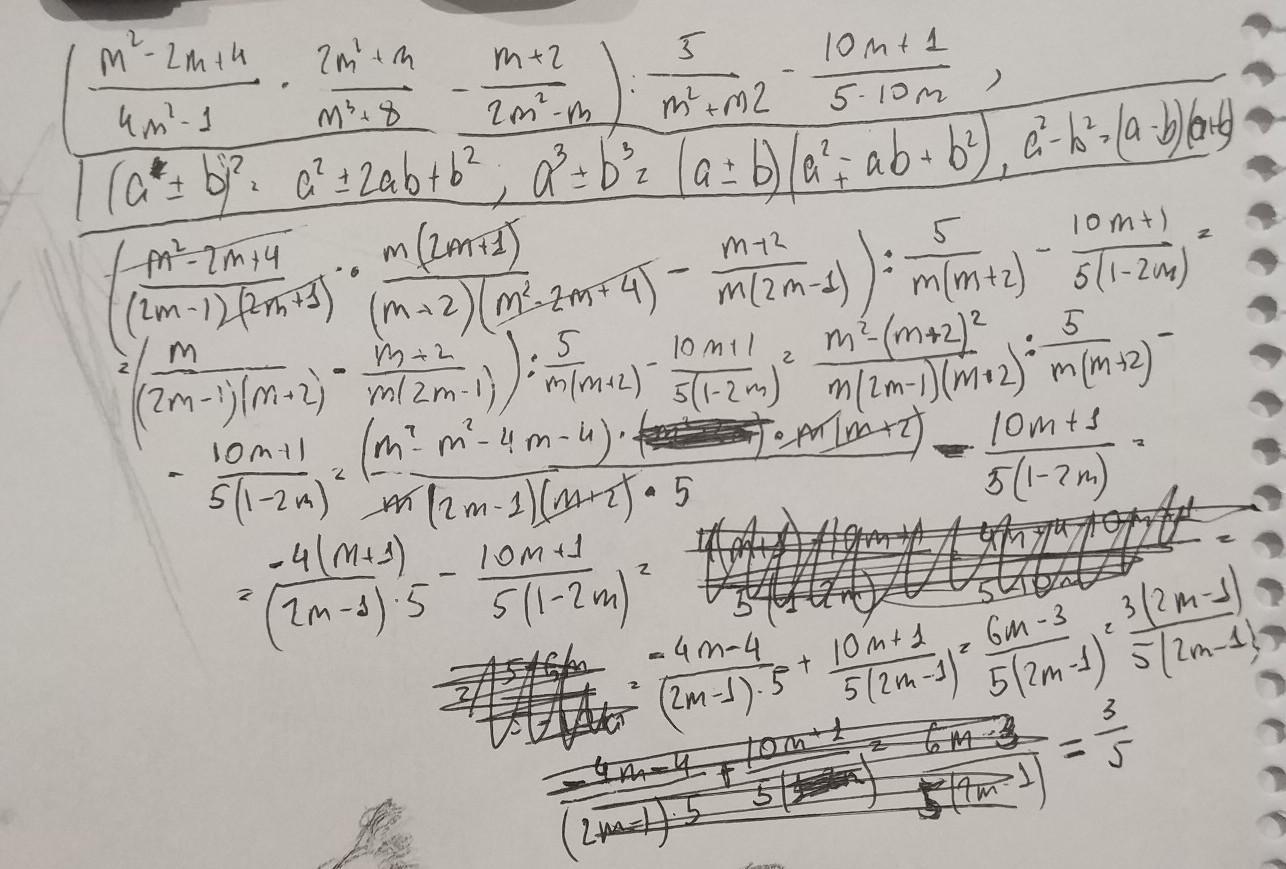 (m²-2m+4)/(4m²-1) · (2m²+m)/(m³+8) - (m+2)/(2m²-m)) : 5/(m²+m2) - (10m+1)/(5-10m),
(a±b)² = a²±2ab+b², a³±b³ = (a±b)(a²∓ab+b²), a²-b²=(a-b)(a+b)
((m²-2m+4)/((2m-1)(2m+1)) · (m(2m+1))/((m+2)(m²-2m+4)) - (m+2)/(m(2m-1))) : 5/(m(m+2)) - (10m+1)/(5(1-2m)) =
=(m/((2m-1)(m+2)) - (m+2)/(m(2m-1))) : 5/(m(m+2)) - (10m+1)/(5(1-2m)) = (m²-(m+2)²)/(m(2m-1)(m+2)) : 5/(m(m+2)) -
- (10m+1)/(5(1-2m)) = ((m²-m²-4m-4)·m(m+2))/(m(2m-1)(m+2)·5) - (10m+1)/(5(1-2m)) =
= (-4(m+1))/((2m-1)·5) - (10m+1)/(5(1-2m)) =
= (-4m-4)/((2m-1)·5) + (10m+1)/(5(2m-1)) = (6m-3)/(5(2m-1)) = (3(2m-1))/(5(2m-1))
= 3/5